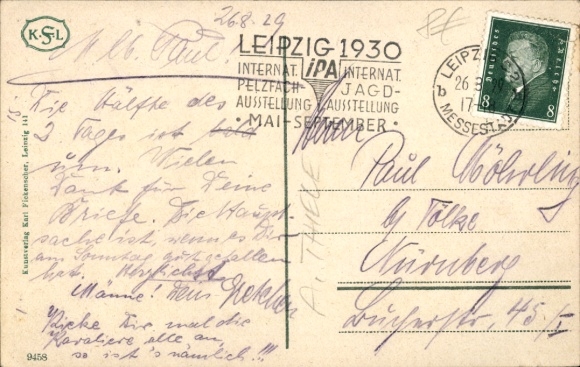 K·S·L
26.8.29
M. lb. Paul!
Die Hälfte des
2 Tages ist
um. Vielen
Dank für Deine
Briefe. Die Haupt-
sache ist, wenn es Dir
am Sonntag gut gefallen
hat. Herzlichst
Männe! Dein
Kieke Dir mal die
Kavaliere alle an,
so ist's nämlich!!!
9458
Kunstverlag Karl Fickenscher, Leipzig 141
LEIPZIG 1930
INTERNAT. iPA INTERNAT.
PELZFACH- JAGD-
AUSSTELLUNG AUSSTELLUNG
• MAI-SEPTEMBER •
LEIPZIG
b 26.8.29
17-
MESSEST
Deutsches Reich
8 8
Herrn
Paul Möhrling
b/ Tölke
Nürnberg
Bucherstr. 45.
A. THIELE